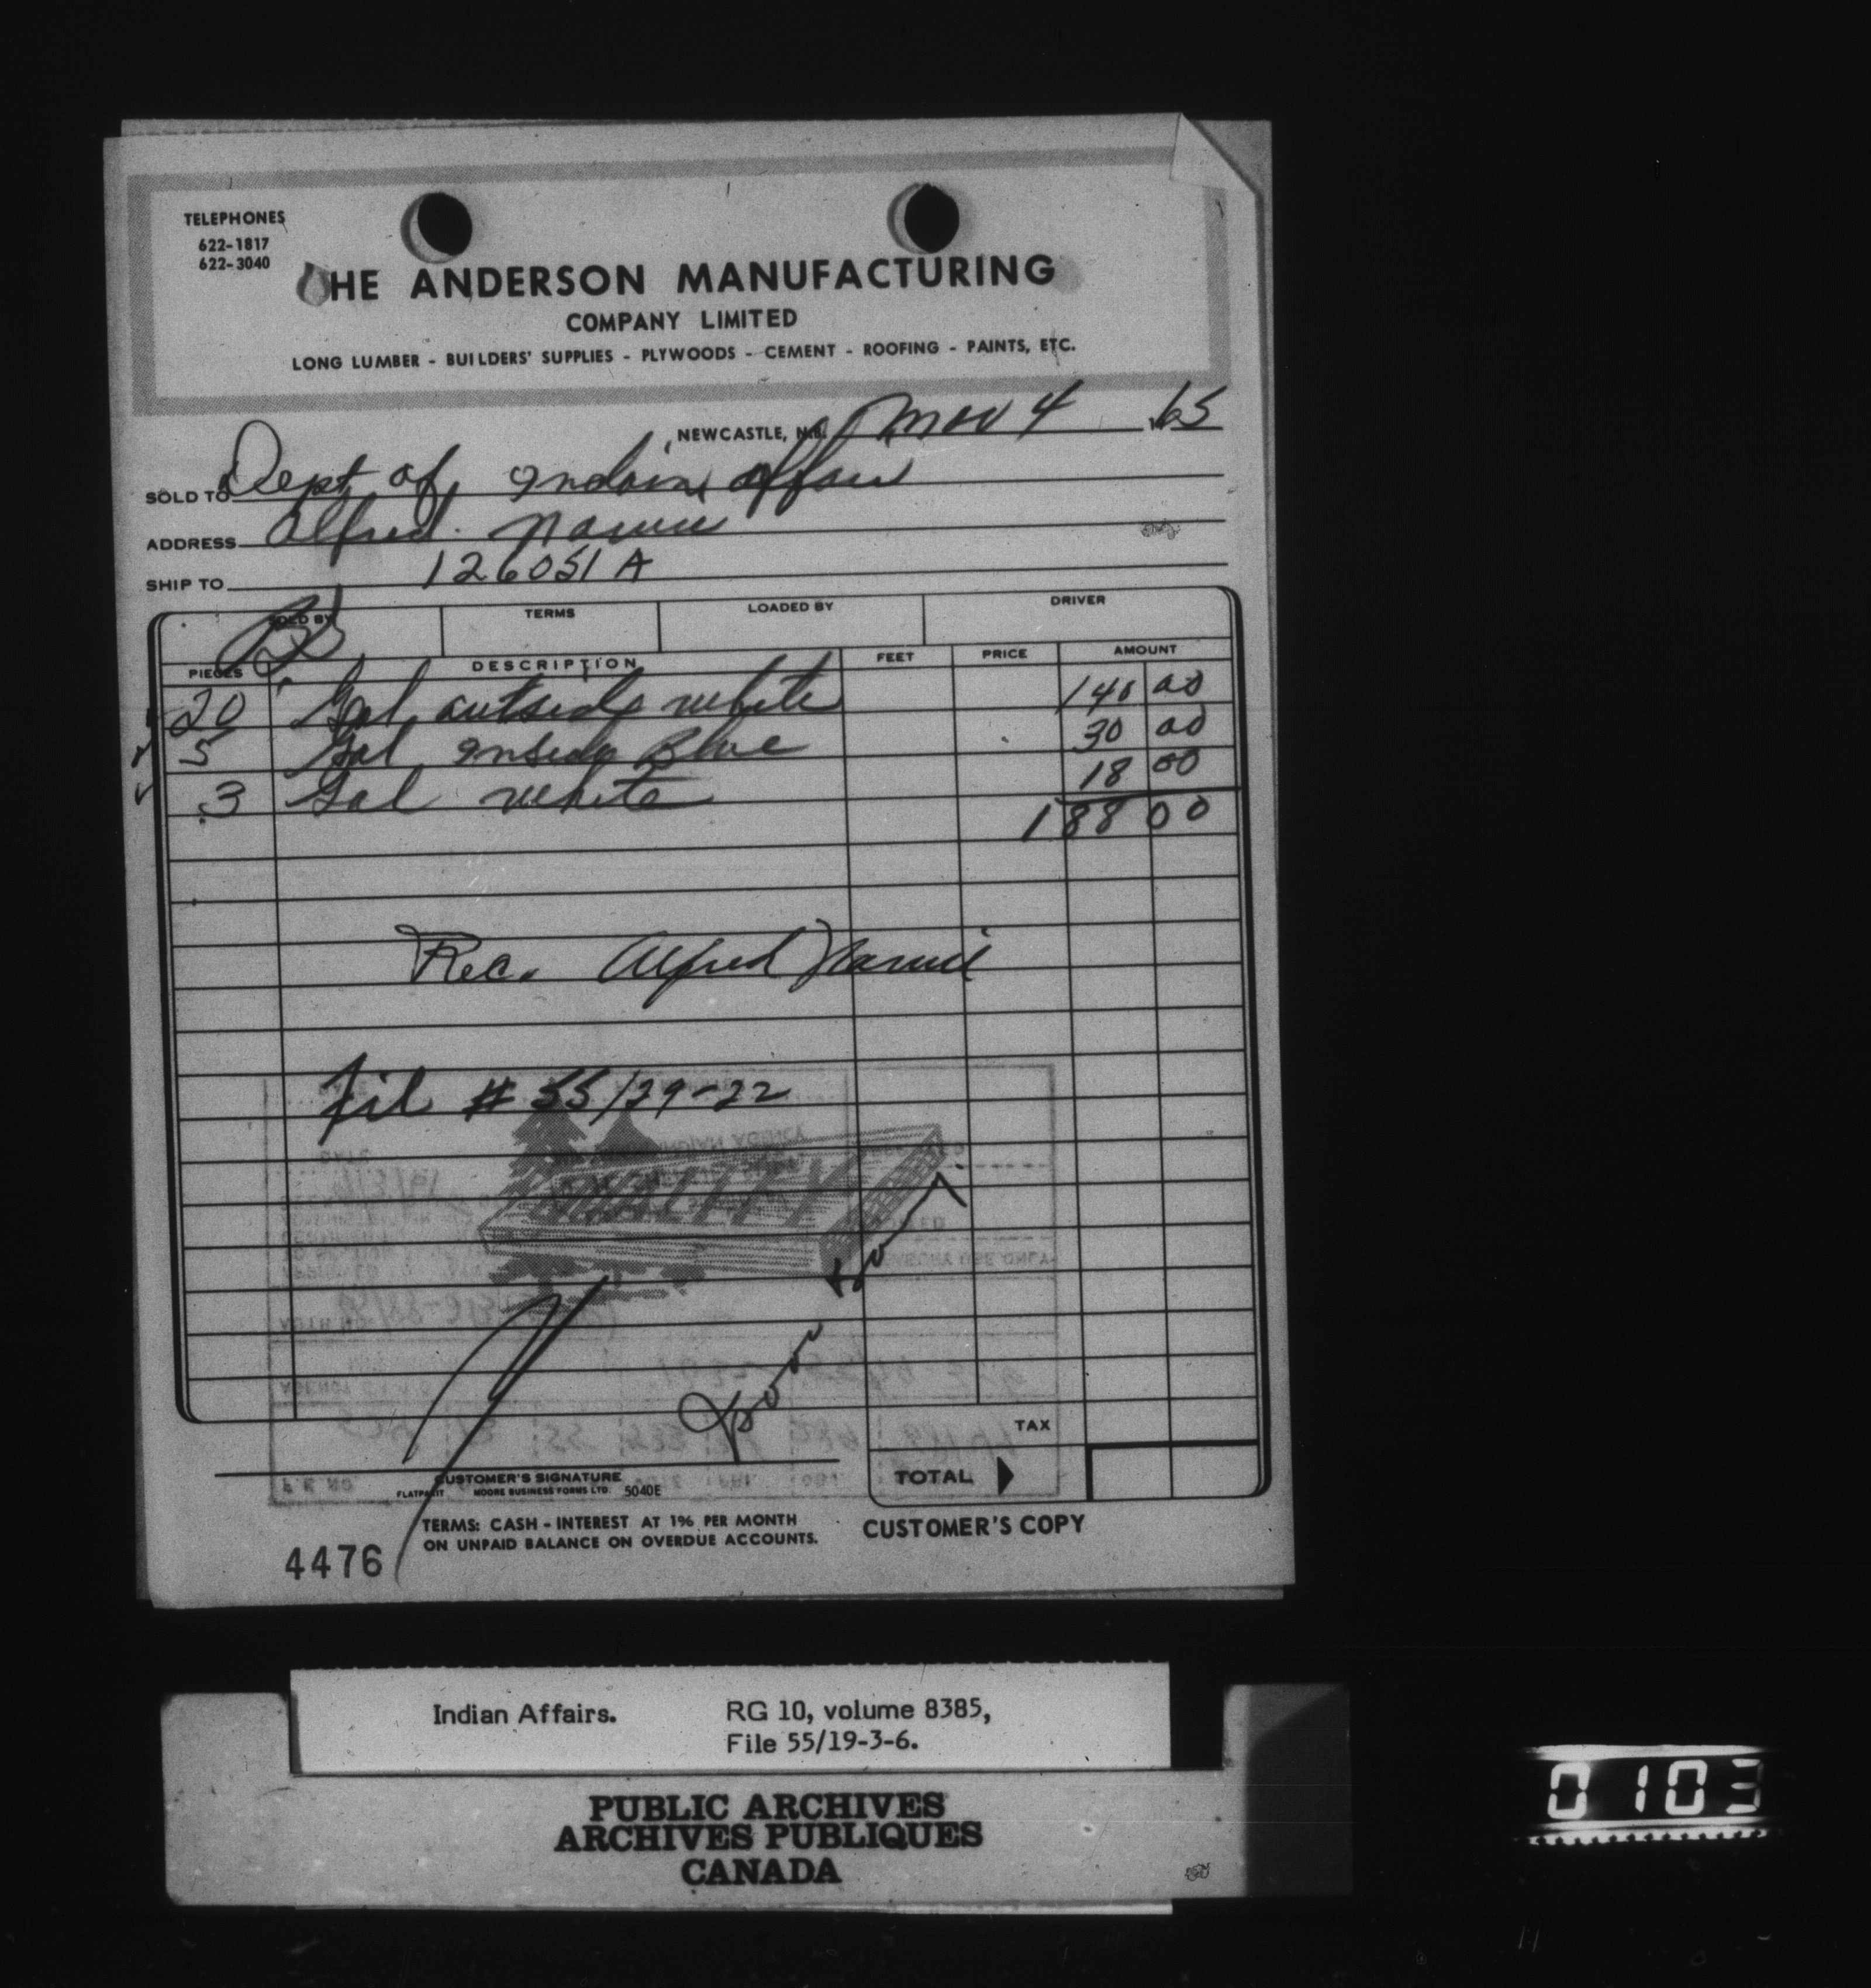 TELEPHONES
622-1817
622-3040
THE ANDERSON MANUFACTURING
COMPANY LIMITED
LONG LUMBER - BUILDERS' SUPPLIES - PLYWOODS - CEMENT - ROOFING - PAINTS, ETC.
NEWCASTLE, N.B. Nov 4 1965
SOLD TO Dept of Indian Affair
ADDRESS Alfred
SHIP TO 126051 A
SOLD BY TERMS LOADED BY DRIVER
PIECES DESCRIPTION FEET PRICE AMOUNT
20 Gal outside white 140 00
5 Gal Inside Blue 30 00
3 Gal white 18 00
188 00
Rec. Alfred
fil # 55/29-22
QUALITY
TAX
TOTAL
CUSTOMER'S SIGNATURE
MOORE BUSINESS FORMS LTD. 5040E
TERMS: CASH - INTEREST AT 1% PER MONTH
ON UNPAID BALANCE ON OVERDUE ACCOUNTS.
CUSTOMER'S COPY
4476
Indian Affairs. RG 10, volume 8385,
File 55/19-3-6.
PUBLIC ARCHIVES
ARCHIVES PUBLIQUES
CANADA
0103